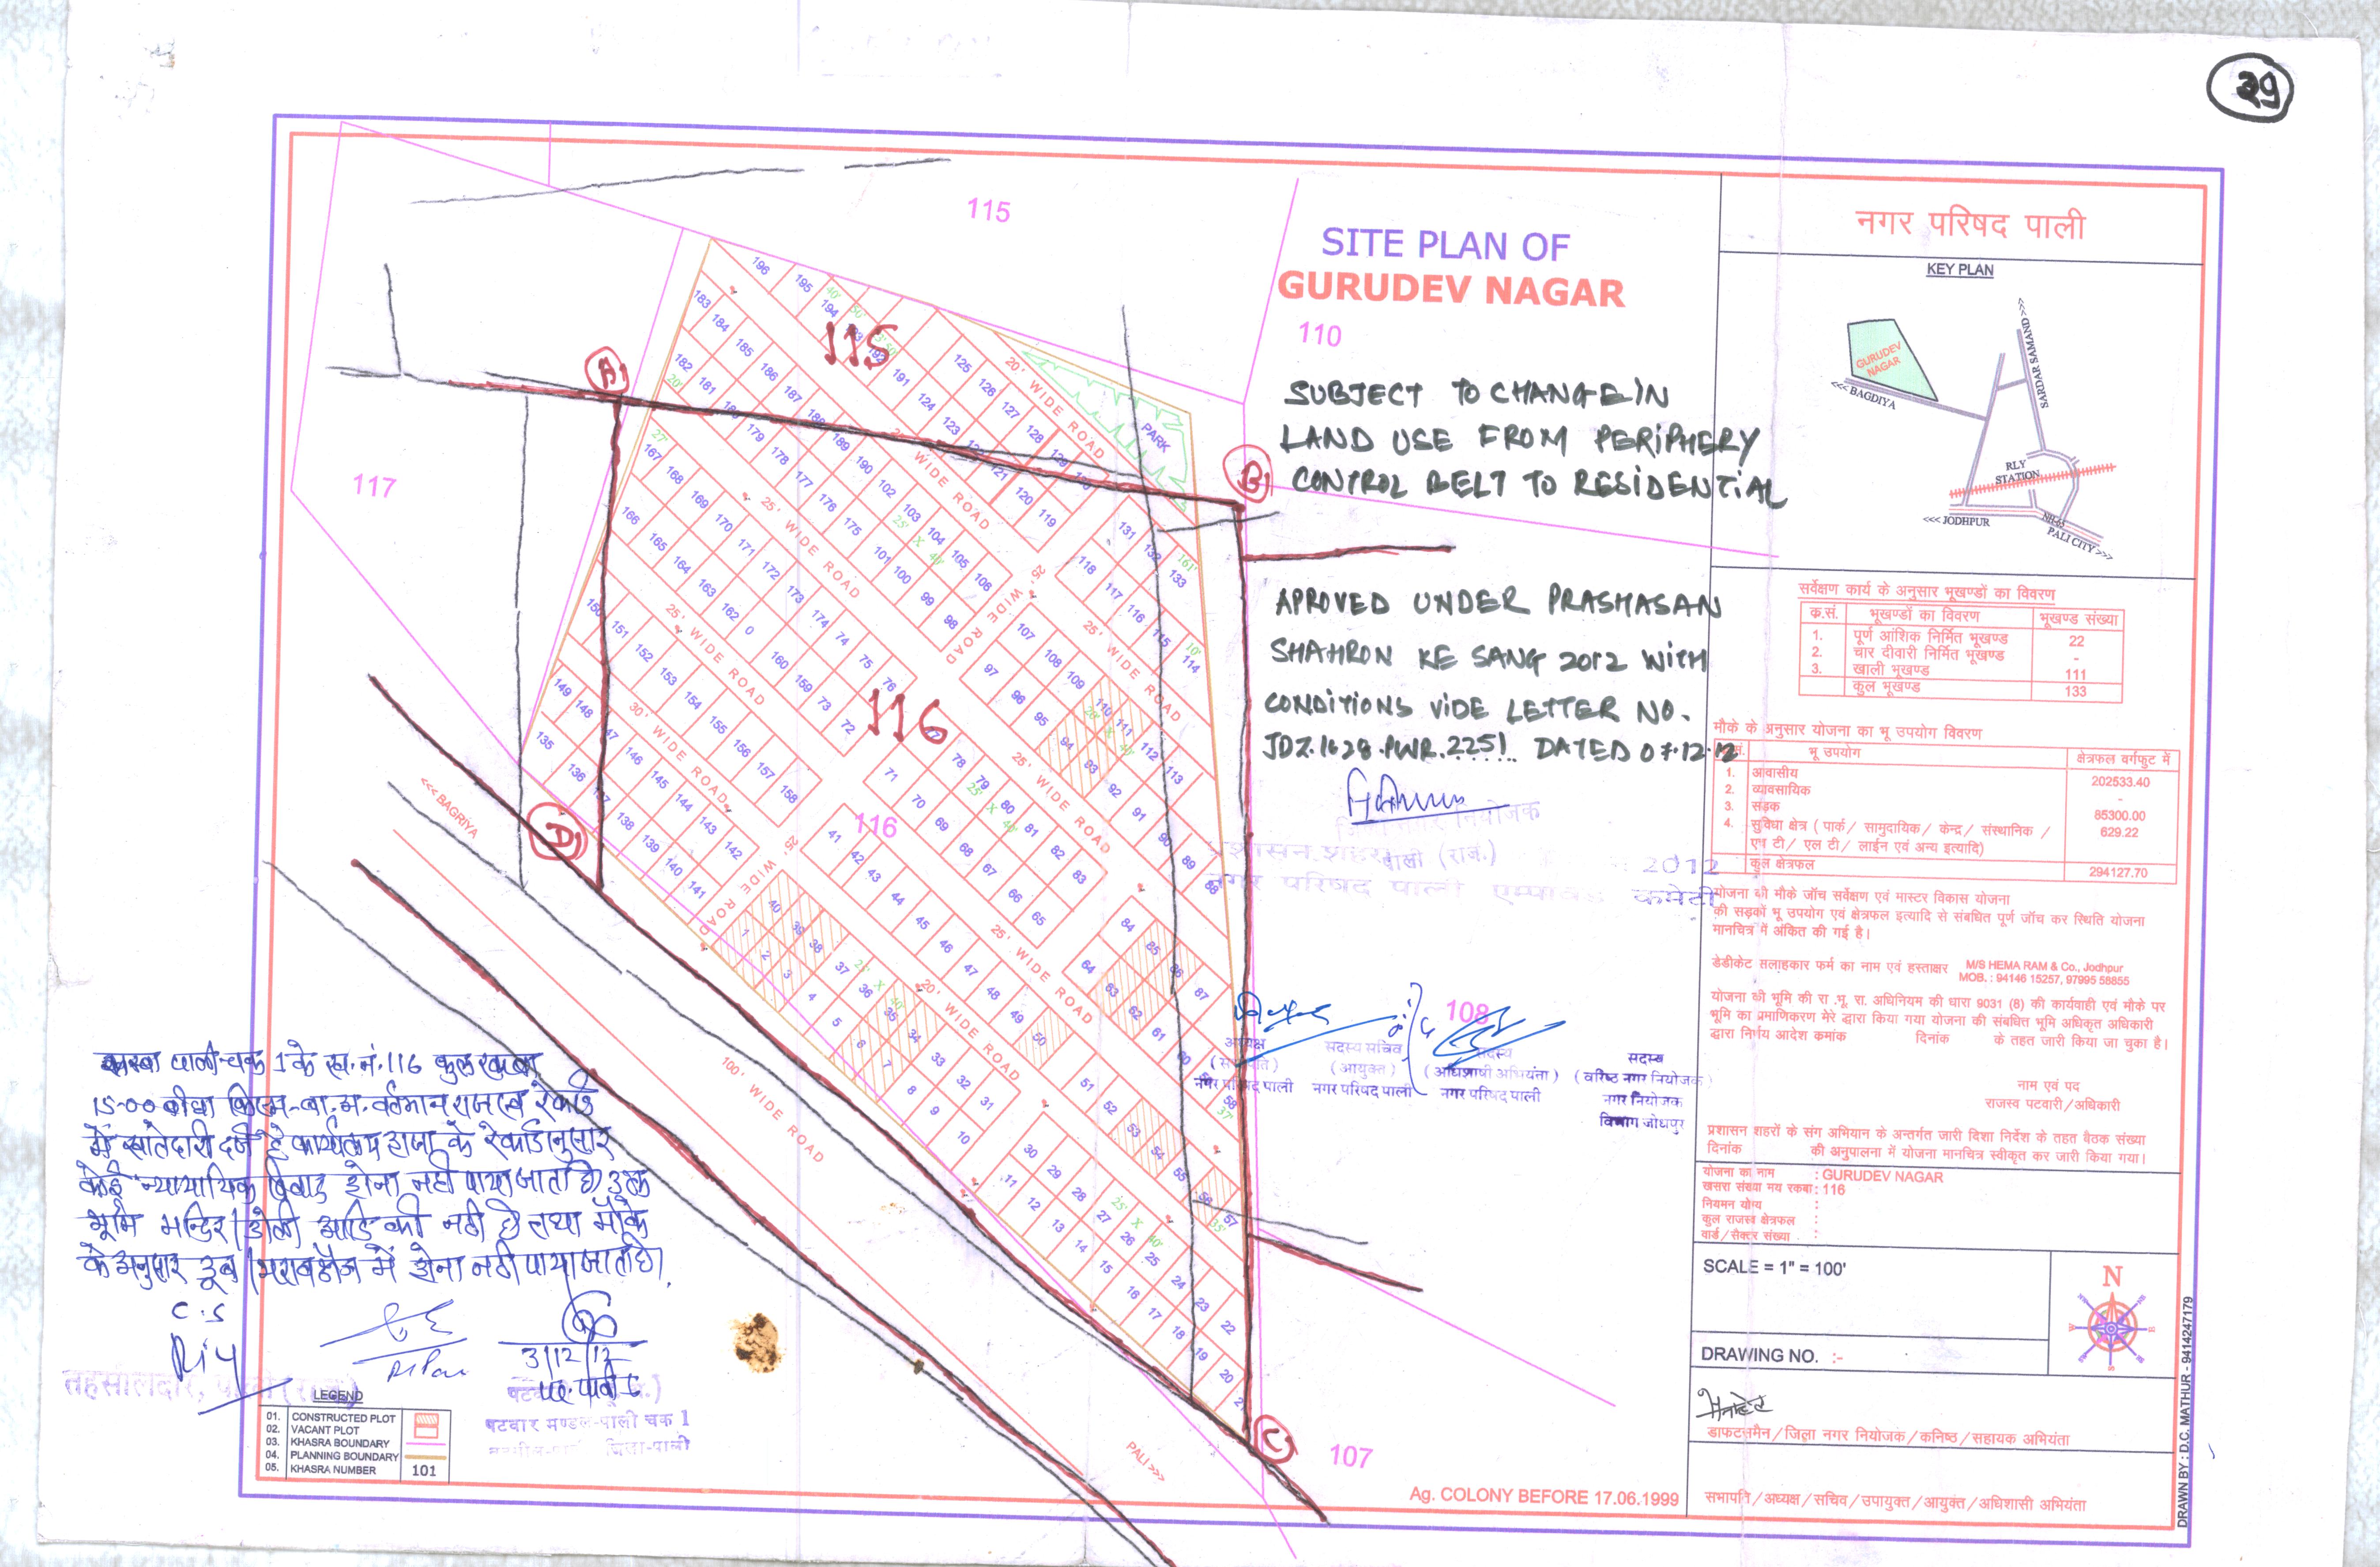 39
SITE PLAN OF
GURUDEV NAGAR
115
110
117
116
108
107
115
116
A1
B1
C1
D1
SUBJECT TO CHANGE IN
LAND USE FROM PERIPHERY
CONTROL BELT TO RESIDENTIAL
APROVED UNDER PRASHASAN
SHAHRON KE SANG 2012 WITH
CONDITIONS VIDE LETTER NO.
JDZ.1628.PWR.2251. DATED 07.12.12
नियोजक
पाली (राज.)
2012
नगर परिषद पाली
कमेटी
PARK
20' WIDE ROAD
25' WIDE ROAD
25' WIDE ROAD
25' WIDE ROAD
25' WIDE ROAD
30' WIDE ROAD
25' WIDE ROAD
25' WIDE ROAD
25' WIDE ROAD
20' WIDE ROAD
100' WIDE ROAD
<<< BAGRIYA
PALI >>>
25' X 40'
196
195
194
192
191
183
184
185
186
187
182
181
179
178
177
176
175
189
190
125
126
127
128
124
123
121
120
119
102
103
104
105
106
101
100
99
98
167
168
169
170
171
172
173
174
74
75
76
166
165
164
163
162
0
160
159
73
72
151
152
153
154
155
156
157
158
149
148
146
145
144
143
142
135
136
138
139
140
141
131
133
118
117
116
115
114
107
108
109
110
111
112
113
97
96
95
94
93
92
91
90
89
88
78
79
80
81
82
83
71
70
69
68
67
66
65
84
85
86
87
64
63
62
61
41
42
43
44
45
46
47
48
49
50
51
52
53
54
55
56
57
58
40
39
38
37
36
35
34
33
32
31
1
2
3
4
5
6
7
8
9
10
30
29
28
27
26
25
24
23
22
11
12
13
14
15
16
17
18
19
20
21
अध्यक्ष
(सभापति)
नगर परिषद पाली
सदस्य सचिव
(आयुक्त)
नगर परिषद पाली
सदस्य
(अधिशाषी अभियंता)
नगर परिषद पाली
सदस्य
(वरिष्ठ नगर नियोजक)
नगर नियोजक
विभाग जोधपुर
कस्बा पाली-चक 1 के ख.नं. 116 कुल रकबा
15-00 बीघा किस्म-बा.म. वर्तमान राजस्व रेकॉर्ड
में खातेदारी दर्ज है कार्यालय हाजा के रेकॉर्डानुसार
कोई न्यायायिक विवाद होना नहीं पाया जाता है। उक्त
भूमि मन्दिर/डोली आदि की नहीं है तथा मौके
के अनुसार डूब/भराव क्षेत्र में होना नहीं पाया जाता है।
C.S
3/12/12
तहसीलदार, पाली (राज.)
पटवार मण्डल-पाली चक 1
जिला-पाली
LEGEND
01. CONSTRUCTED PLOT
02. VACANT PLOT
03. KHASRA BOUNDARY
04. PLANNING BOUNDARY
05. KHASRA NUMBER 101
Ag. COLONY BEFORE 17.06.1999
नगर परिषद पाली
KEY PLAN
GURUDEV
NAGAR
<<< BAGDIYA
SARDAR SAMAND >>>
RLY
STATION
<<< JODHPUR
NH-65
PALI CITY >>>
सर्वेक्षण कार्य के अनुसार भूखण्डों का विवरण
क्र.सं. भूखण्डों का विवरण भूखण्ड संख्या
1. पूर्ण आंशिक निर्मित भूखण्ड 22
2. चार दीवारी निर्मित भूखण्ड -
3. खाली भूखण्ड 111
कुल भूखण्ड 133
मौके के अनुसार योजना का भू उपयोग विवरण
भू उपयोग क्षेत्रफल वर्गफुट में
1. आवासीय 202533.40
2. व्यावसायिक -
3. सड़क 85300.00
4. सुविधा क्षेत्र ( पार्क/ सामुदायिक/ केन्द्र/ संस्थानिक / 629.22
एच टी/ एल टी/ लाईन एवं अन्य इत्यादि)
कुल क्षेत्रफल 294127.70
योजना की मौके जाँच सर्वेक्षण एवं मास्टर विकास योजना
की सड़कों भू उपयोग एवं क्षेत्रफल इत्यादि से संबधित पूर्ण जाँच कर स्थिति योजना
मानचित्र में अंकित की गई है।
डेडीकेट सलाहकार फर्म का नाम एवं हस्ताक्षर M/S HEMA RAM & Co., Jodhpur
MOB. : 94146 15257, 97995 58855
योजना की भूमि की रा .भू. रा. अधिनियम की धारा 9031 (8) की कार्यवाही एवं मौके पर
भूमि का प्रमाणिकरण मेरे द्वारा किया गया योजना की संबधित भूमि अधिकृत अधिकारी
द्वारा निर्णय आदेश कमांक दिनांक के तहत जारी किया जा चुका है।
नाम एवं पद
राजस्व पटवारी/अधिकारी
प्रशासन शहरों के संग अभियान के अन्तर्गत जारी दिशा निर्देश के तहत बैठक संख्या
दिनांक की अनुपालना में योजना मानचित्र स्वीकृत कर जारी किया गया।
योजना का नाम : GURUDEV NAGAR
खसरा संख्या मय रकबा : 116
नियमन योग्य :
कुल राजस्व क्षेत्रफल :
वार्ड/सैक्टर संख्या :
SCALE = 1" = 100'
N
DRAWING NO. :-
डाफटसमैन/जिला नगर नियोजक/कनिष्ठ/सहायक अभियंता
सभापति/अध्यक्ष/सचिव/उपायुक्त/आयुक्त/अधिशासी अभियंता
DRAWN BY : D.C. MATHUR - 9414247179